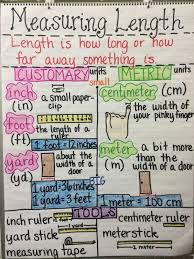 Measuring Length
Length is how long or how
far away something is.
CUSTOMARY units
METRIC units
small
inch
(in)
a small paper-
clip
centimeter
(cm)
the width of
your pinky finger
foot
(ft)
the length of a
ruler
1 foot = 12 inches
yard
(yd)
about the
width of a
door
BIG
1 yard = 36 inches
1 yard = 3 feet
meter
(m)
a bit more
than the width
of a door
1 meter = 100 cm
TOOLS
inch ruler
yard stick
measuring tape
centimeter ruler
meterstick
1 meter